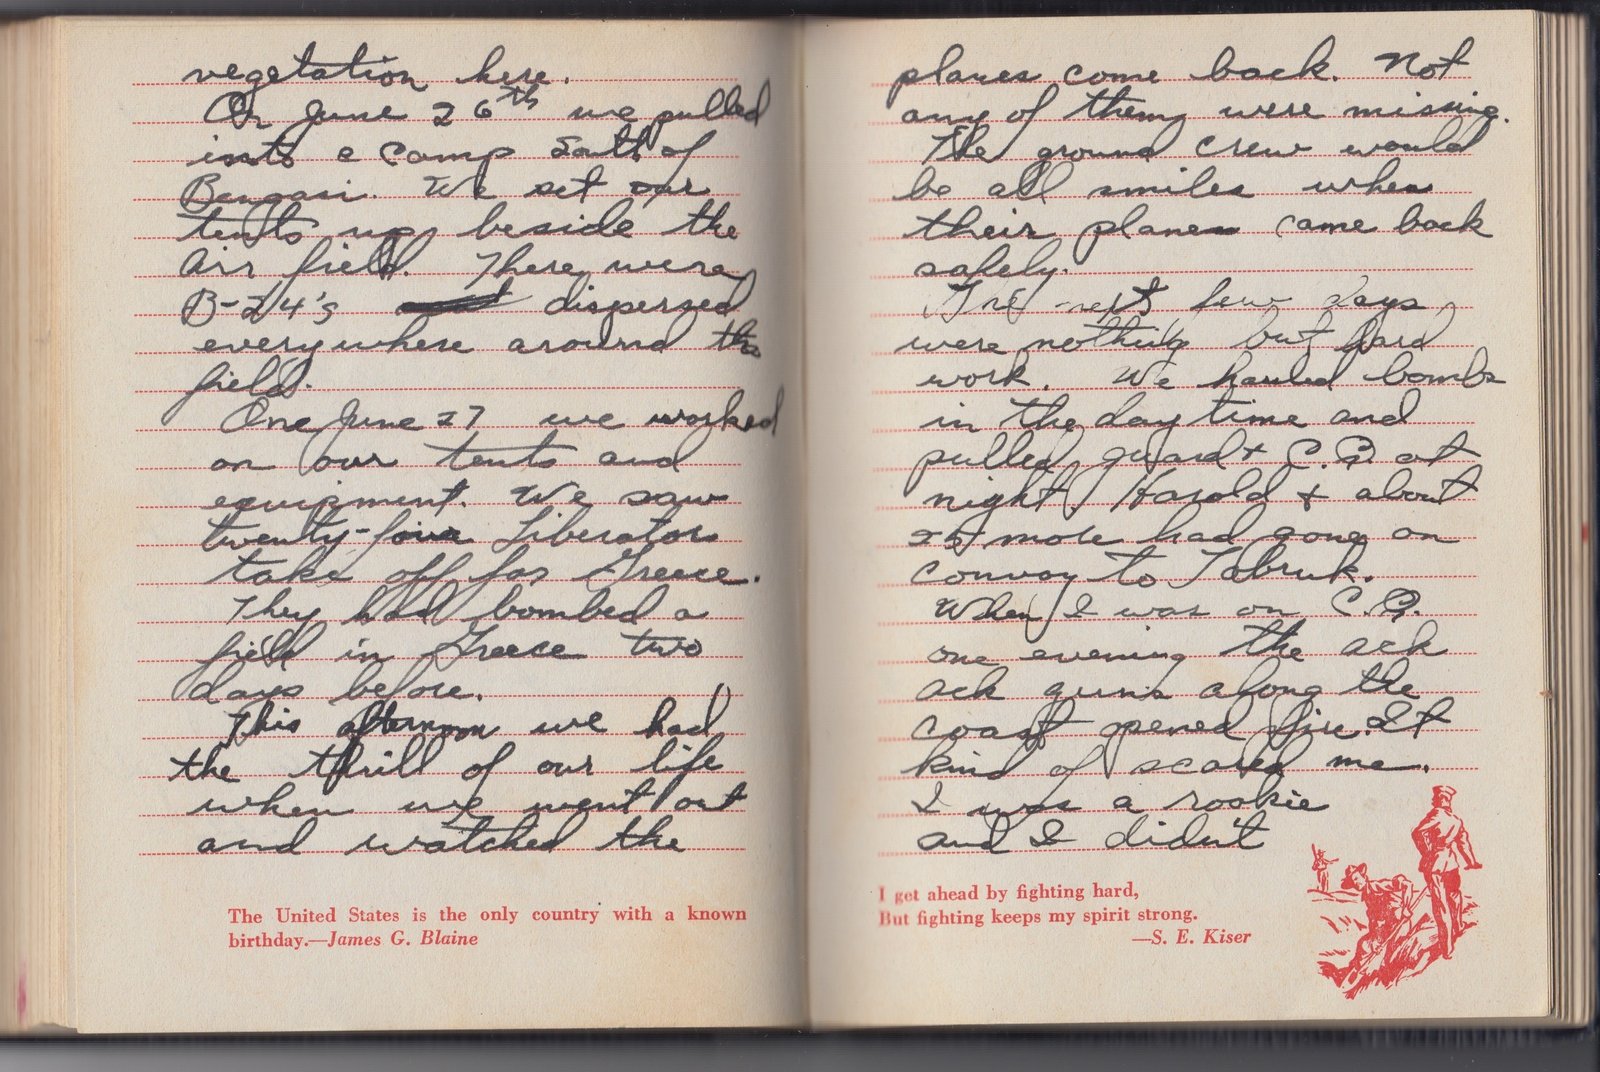 vegetation here.
On June 26th we pulled
into a camp South of
Bengasi. We set our
tents up beside the
air field. There were
B-24's dispersed
everywhere around the
field.
One June 27 we worked
on our tents and
equipment. We saw
twenty-four Liberators
take off for Greece.
They had bombed a
field in Greece two
days before.
This afternoon we had
the thrill of our life
when we went out
and watched the
The United States is the only country with a known
birthday.—James G. Blaine
planes come back. Not
any of them were missing.
The ground crew would
be all smiles when
their planes came back
safely.
The next few days
were nothing but hard
work. We hauled bombs
in the day time and
pulled guard + C.Q. at
night. Harold + about
more had gone on
convoy to Tobruk.
When I was on C.Q.
one evening the ack
ack guns along the
coast opened fire. It
kind of scared me.
I was a rookie
and I didn't
I get ahead by fighting hard,
But fighting keeps my spirit strong.
—S. E. Kiser